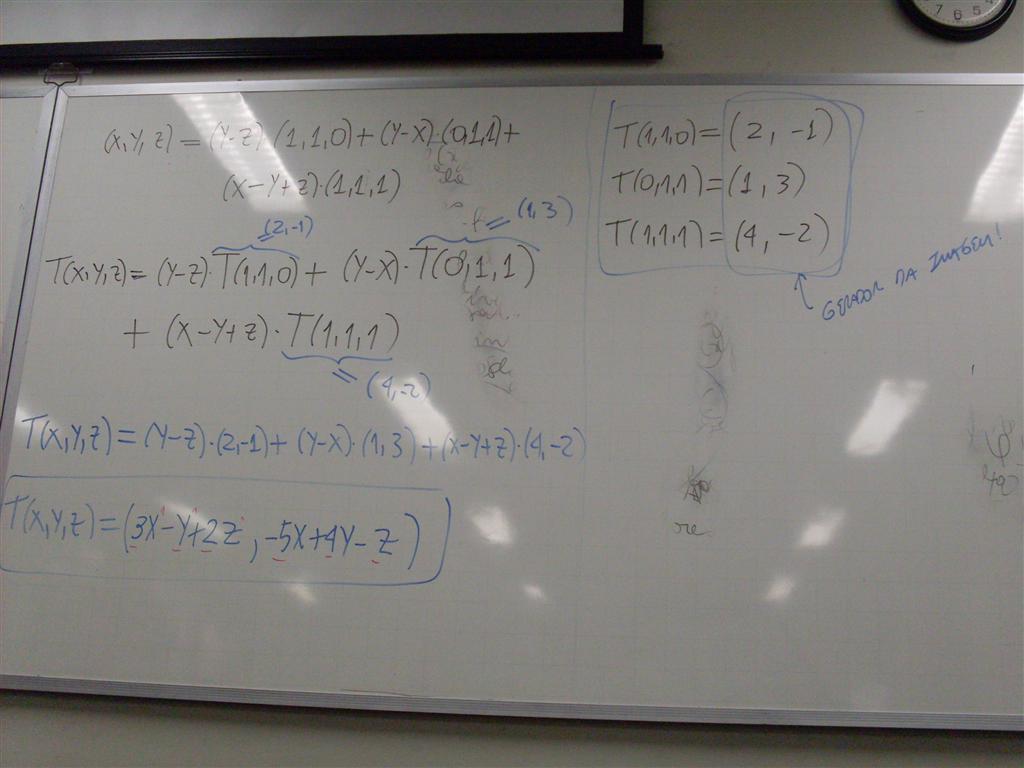 (x,y,z) = (y-z)·(1,1,0) + (y-x)·(0,1,1) +
(x-y+z)·(1,1,1)
= (2,-1)
= (1,3)
T(x,y,z) = (y-z)·T(1,1,0) + (y-x)·T(0,1,1)
+ (x-y+z)·T(1,1,1)
= (4,-2)
T(x,y,z) = (y-z)·(2,-1) + (y-x)·(1,3) + (x-y+z)·(4,-2)
T(x,y,z) = (3x-y+2z, -5x+4y-z)
T(1,1,0) = (2, -1)
T(0,1,1) = (1, 3)
T(1,1,1) = (4, -2)
GERADOR DA IMAGEM!
7 6 5